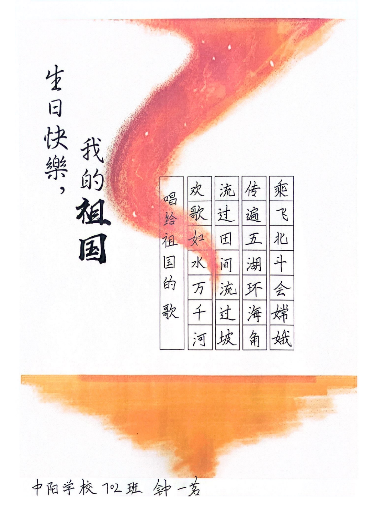 生日快樂，
我的祖国
唱给祖国的歌
欢歌如水万千河
流过田间流过坡
传遍五湖环海角
乘飞北斗会嫦娥
中阳学校702班 钟一茗